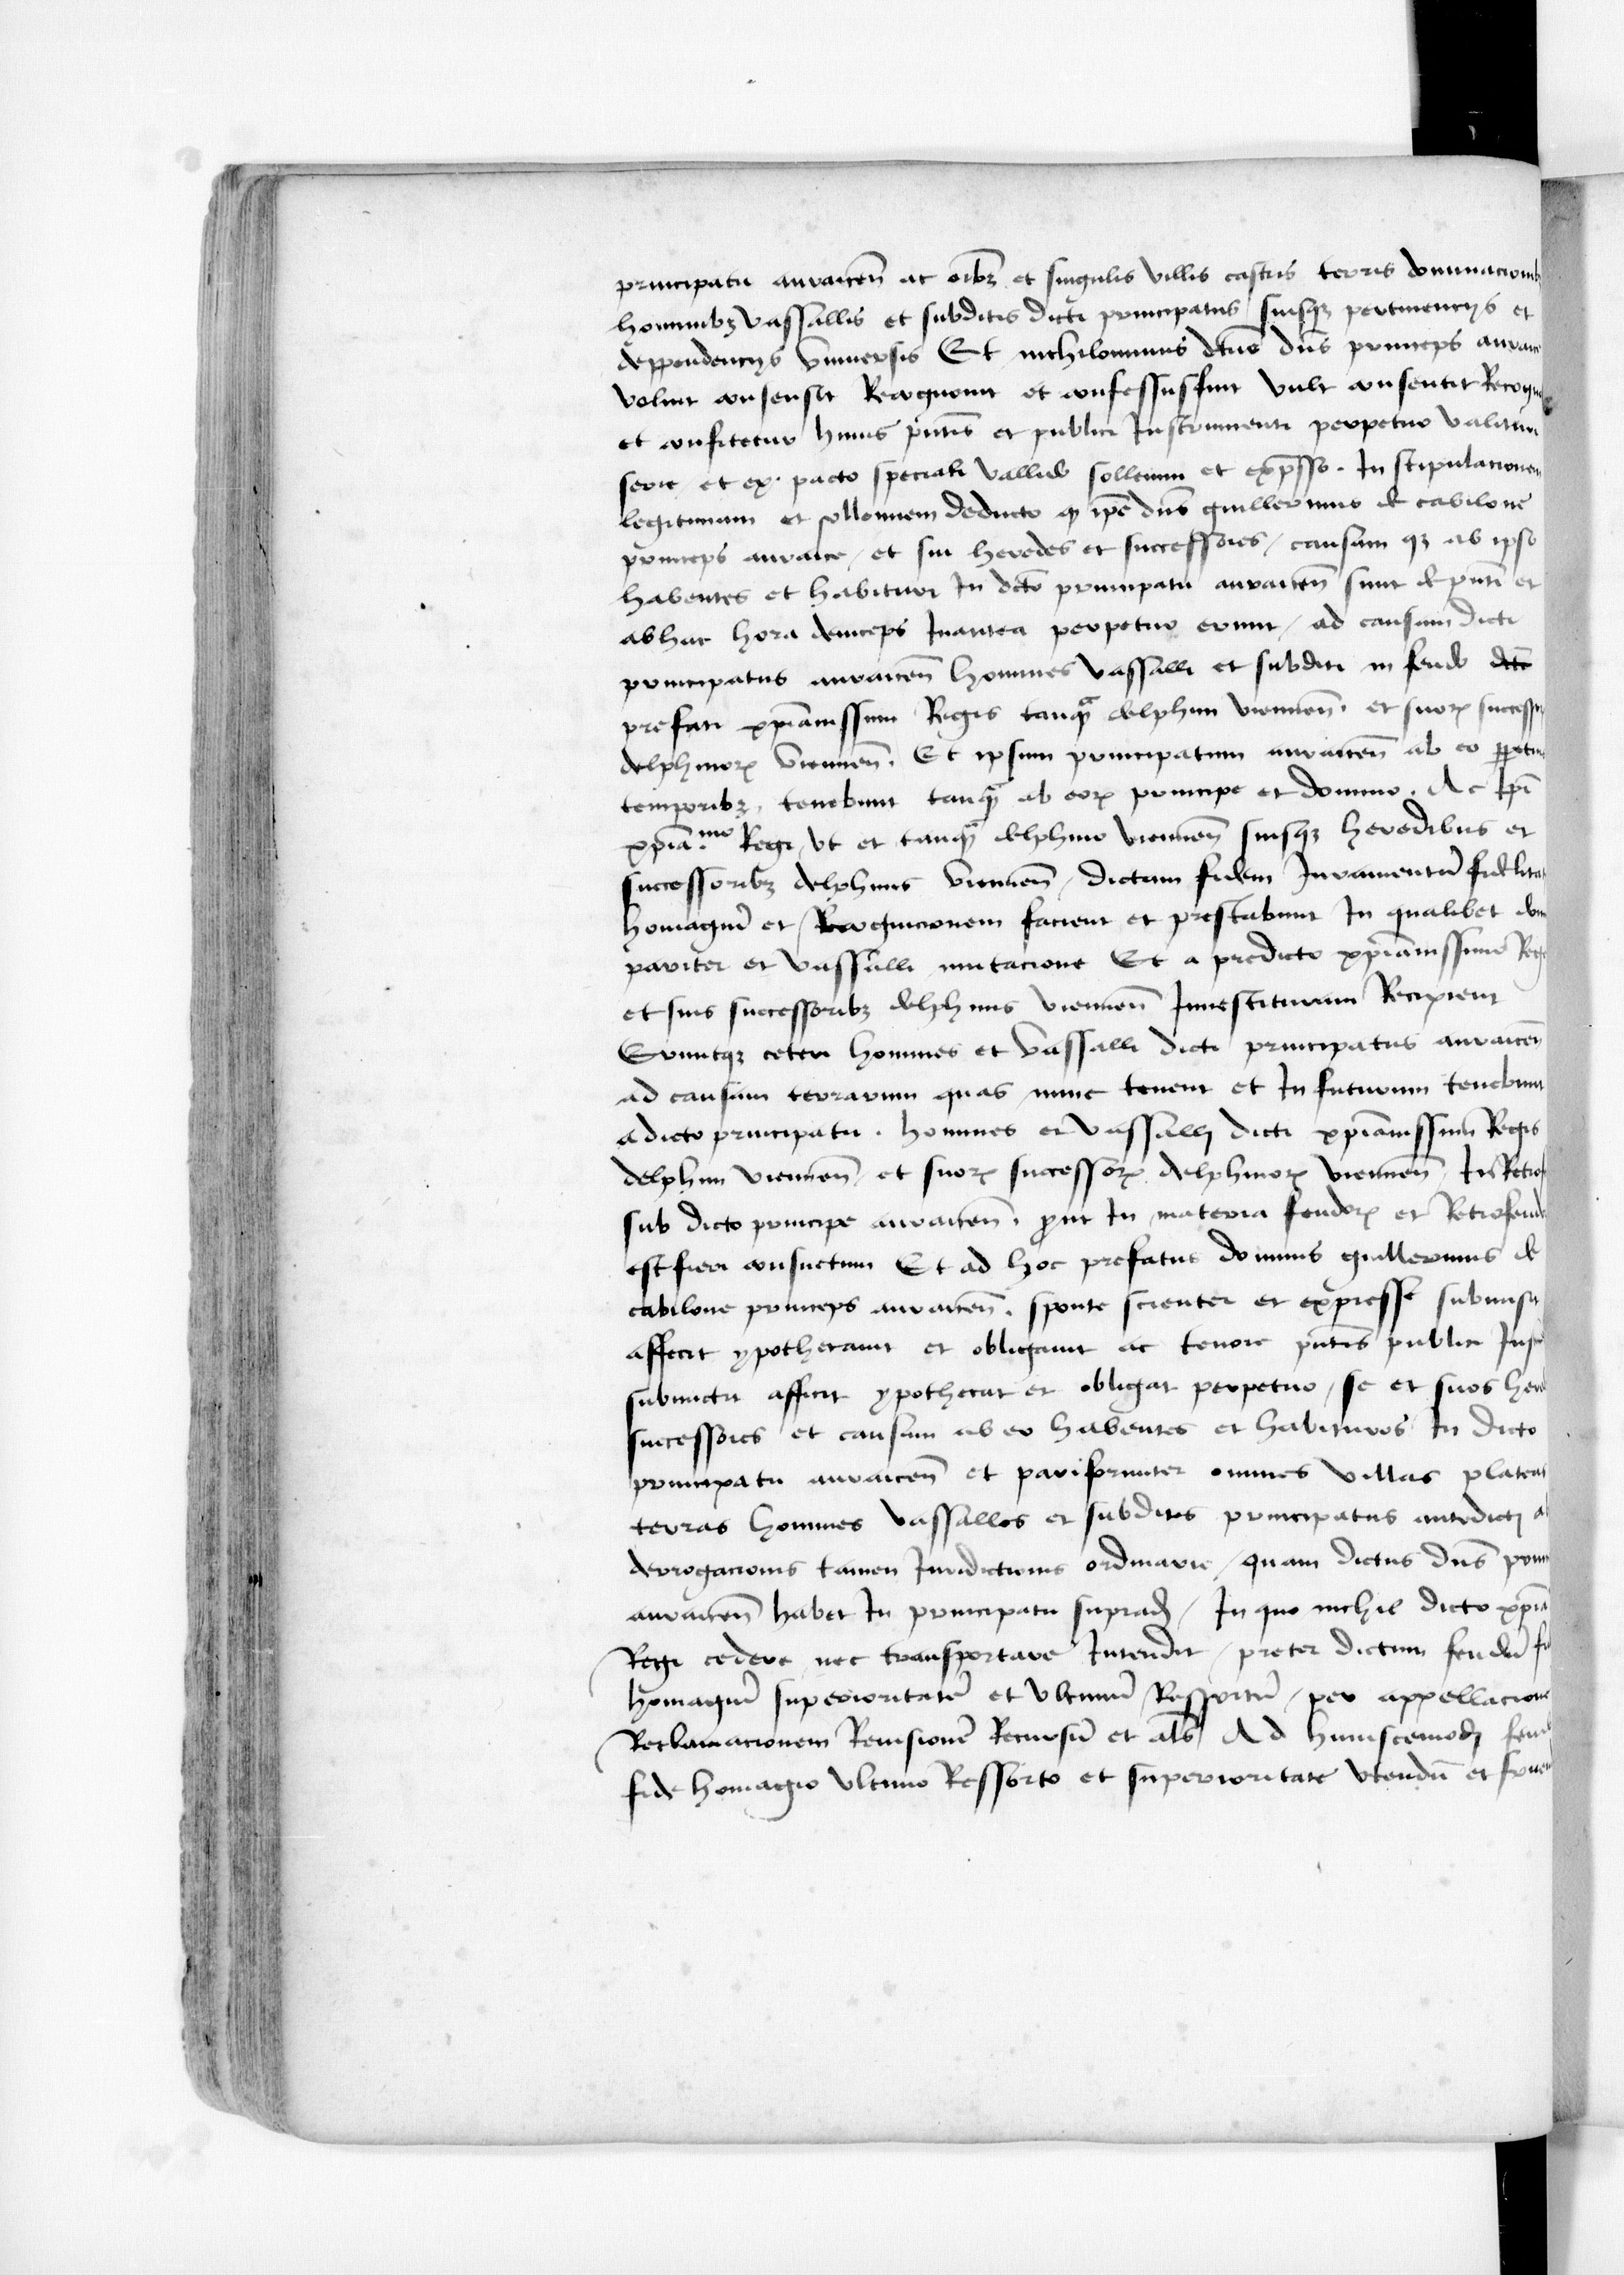 principatu auraicen̄ ac oībꝫ et singulis villis castris terris dominacionib
hominibꝫ vassallis et subditis dicti principatus suisqꝫ pertinencijs et
deppendencijs vniuersis Et nichilominus dc̄us dn̄s princeps auraic
voluit consensit Recognouit et confessus fuit vult consentit Recogn
et confitetur huius pn̄tis et publici Instrumenti perpetuo valituri
serie et ex pacto speciali vallido sollemni et exp̄sso. In stipulacionem
legitimam et sollennem deducto qꝫ ip̄e dn̄s guillermus de cabilone
princeps auraice, et sui heredes et successores, causam qꝫ ab ipso
habentes et habituri In dc̄o principatu auraicen̄ sunt de pn̄ti et
ab hac hora deinceps Inantea perpetuo erunt, ad causam dicti
principatus auraicen̄ homines vassalli et subditi in feudo dc̄i
prefati xp̄ianissimi Regis tanqᷓ delphini viennen̄. et suoꝝ success
delphinoꝝ viennen̄. Et ipsum principatum auraicen̄ ab eo ꝑpetui
temporibꝫ, tenebunt tanqᷓ ab eoꝝ principe et domino. Ac Ip̄i
xp̄ia.mo Regi, vt et tanqᷓ delphino viennen̄ suisqꝫ heredibus et
successoribꝫ delphinis viennen̄, dictam fidem Iuramentū fidelitat
homagiū et Recognicionem facient et prestabunt In qualibet dom
pariter et vassalli mutacione Et a predicto xp̄ianissimo Rege
et suis successoribꝫ delphinis viennen̄ Inuestituram Recipient
Eruntqꝫ ceteri homines et vassalli dicti principatus auraicen̄
ad causam terrarum quas nunc tenent et In futurum tenebunt
a dicto principatu. homines et vassallj dicti xp̄ianissimi Regis
delphini viennen̄ et suoꝝ successoꝝ delphinoꝝ viennen̄, In Retrof
sub dicto principe auraicen̄. ꝓut In materia feudoꝝ et Retrofeud
est fieri consuetum Et ad hoc prefatus dominus guillermus de
cabilone princeps auraicen̄. sponte scienter et expresse submisit
affecit ypothecauit et obligauit ac tenore pn̄tis publici Inst
submictit afficit ypothecat et obligat perpetuo, se et suos hered
successores et causam ab eo habentes et habituros In dicto
principatu auraicen̄ et pariformiter omnes villas plateas
terras homines vassallos et subditos principatus antedictj a
derrogacionis tamen Iuridictionis ordinarie, quam dictus dn̄s prin
auraicen̄ habet In principatu supradꝫ, In quo nichil dicto xp̄ia
Regi cedere nec transportare Intendit, preter dictum feudū fi
homagiū superioritatē et vltimū Ressortū, per appellacione
Reclamacionem Reuisionē Recursū et al̄s Ad huiuscemodj feud
fide homagio vltimo Ressorto et superioritate vtendū et fruen